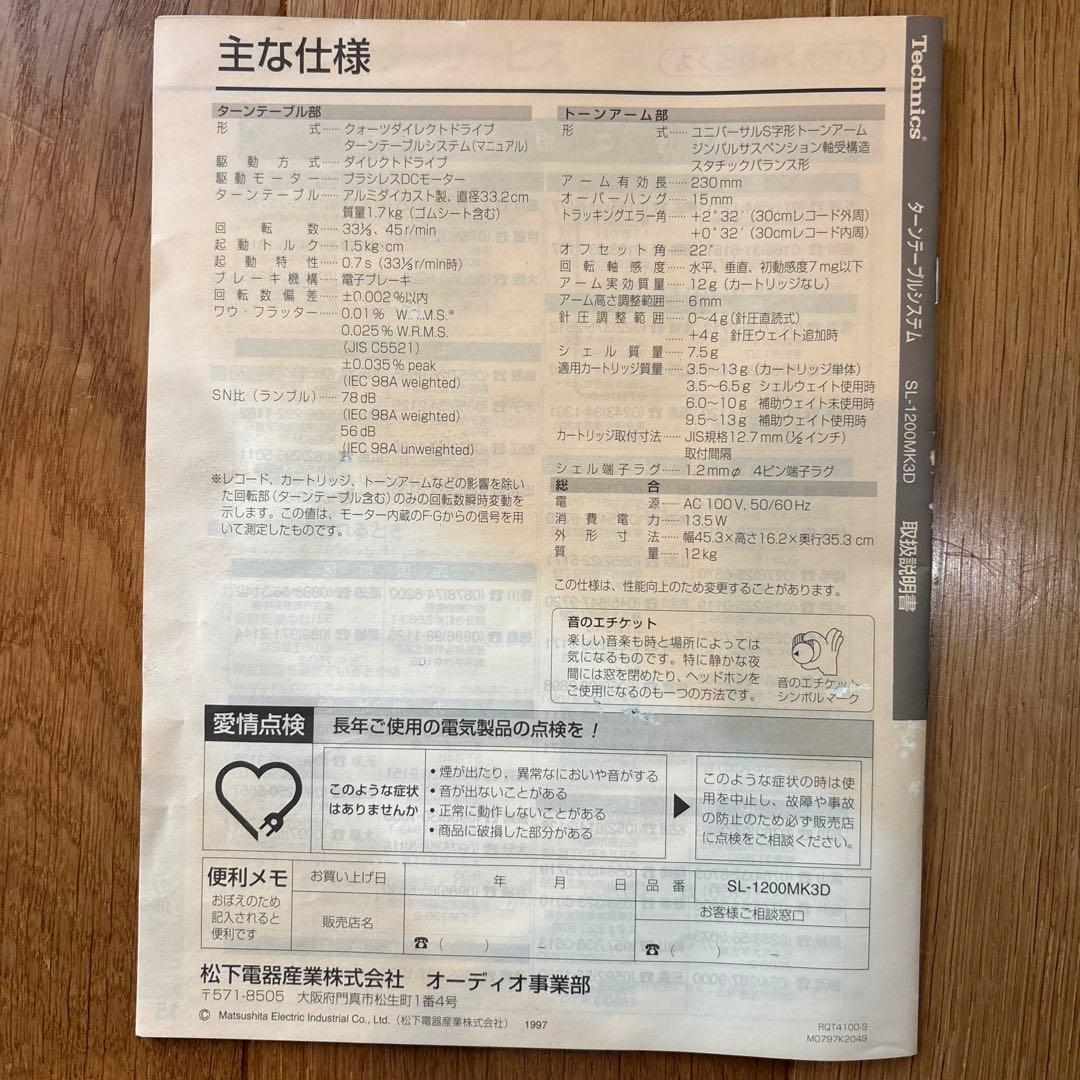 主な仕様
ターンテーブル部
形 式…… クォーツダイレクトドライブ
ターンテーブルシステム(マニュアル)
駆動方式…… ダイレクトドライブ
駆動モーター…… ブラシレスDCモーター
ターンテーブル…… アルミダイカスト製、直径33.2cm
質量1.7kg(ゴムシート含む)
回転数…… 33⅓、45r/min
起動トルク…… 1.5kg·cm
起動特性…… 0.7s(33⅓r/min時)
ブレーキ機構…… 電子ブレーキ
回転数偏差…… ±0.002%以内
ワウ・フラッター…… 0.01% W.R.M.S.※
0.025% W.R.M.S.
(JIS C5521)
±0.035% peak
(IEC 98A weighted)
SN比(ランブル)…… 78dB
(IEC 98A weighted)
56dB
(IEC 98A unweighted)
※レコード、カートリッジ、トーンアームなどの影響を除い
た回転部(ターンテーブル含む)のみの回転数瞬時変動を
示します。この値は、モーター内蔵のF·Gからの信号を用
いて測定したものです。
トーンアーム部
形 式…… ユニバーサルS字形トーンアーム
ジンバルサスペンション軸受構造
スタチックバランス形
アーム有効長…… 230mm
オーバーハング…… 15mm
トラッキングエラー角…… +2°32′(30cmレコード外周)
+0°32′(30cmレコード内周)
オフセット角…… 22°
回転軸感度…… 水平、垂直、初動感度7mg以下
アーム実効質量…… 12g(カートリッジなし)
アーム高さ調整範囲…… 6mm
針圧調整範囲…… 0〜4g(針圧直読式)
+4g 針圧ウェイト追加時
シェル質量…… 7.5g
適用カートリッジ質量…… 3.5〜13g(カートリッジ単体)
3.5〜6.5g シェルウェイト使用時
6.0〜10g 補助ウェイト未使用時
9.5〜13g 補助ウェイト使用時
カートリッジ取付寸法…… JIS規格12.7mm(½インチ)
取付間隔
シェル端子ラグ…… 1.2mmφ 4ピン端子ラグ
総合
電源…… AC 100V, 50/60Hz
消費電力…… 13.5W
外形寸法…… 幅45.3×高さ16.2×奥行35.3cm
質量…… 12kg
この仕様は、性能向上のため変更することがあります。
音のエチケット
楽しい音楽も時と場所によっては
気になるものです。特に静かな夜
間には窓を閉めたり、ヘッドホンを
ご使用になるのも一つの方法です。
音のエチケット
シンボルマーク
愛情点検
長年ご使用の電気製品の点検を!
このような症状
はありませんか
•煙が出たり、異常なにおいや音がする
•音が出ないことがある
•正常に動作しないことがある
•商品に破損した部分がある
このような症状の時は使
用を中止し、故障や事故
の防止のため必ず販売店
に点検をご相談ください。
便利メモ
おぼえのため
記入されると
便利です
お買い上げ日 年 月 日
品番 SL-1200MK3D
販売店名
☎( ) −
お客様ご相談窓口
☎( ) −
松下電器産業株式会社 オーディオ事業部
〒571-8505 大阪府門真市松生町1番4号
© Matsushita Electric Industrial Co., Ltd.(松下電器産業株式会社) 1997
RQT4100-S
M0797K2049
Technics®
ターンテーブルシステム SL-1200MK3D 取扱説明書